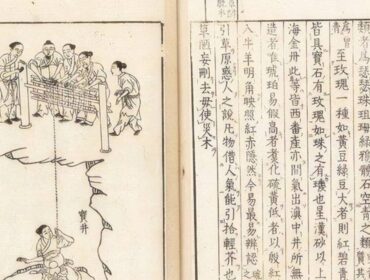 類者為瑟瑟珠珇母綠鴉鶻石空青之類
青至玫瑰一種如黃豆綠豆大者則紅碧青
皆具寶石有玫瑰如珠之有璣也星漢砂以上
海金丹此等皆西番產亦間氣出滇中井所無
造者唯琥珀易假高者煮化硫黃低者以殷紅
入牛羊明角映照紅赤隱然今易最易辨認
引草原惑人之說凡物借人氣能引拾輕芥也
草陋妄刪去毋使災木
寶井